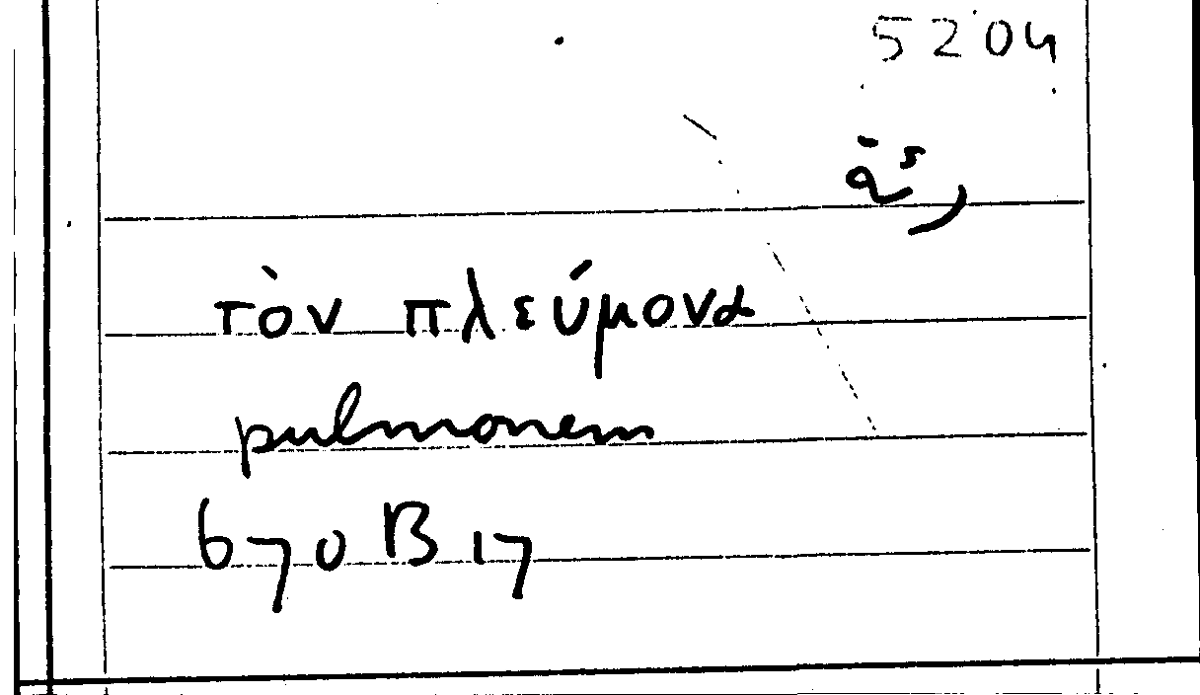 5204
τὸν πλεύμονα
pulmonem
670 B 17